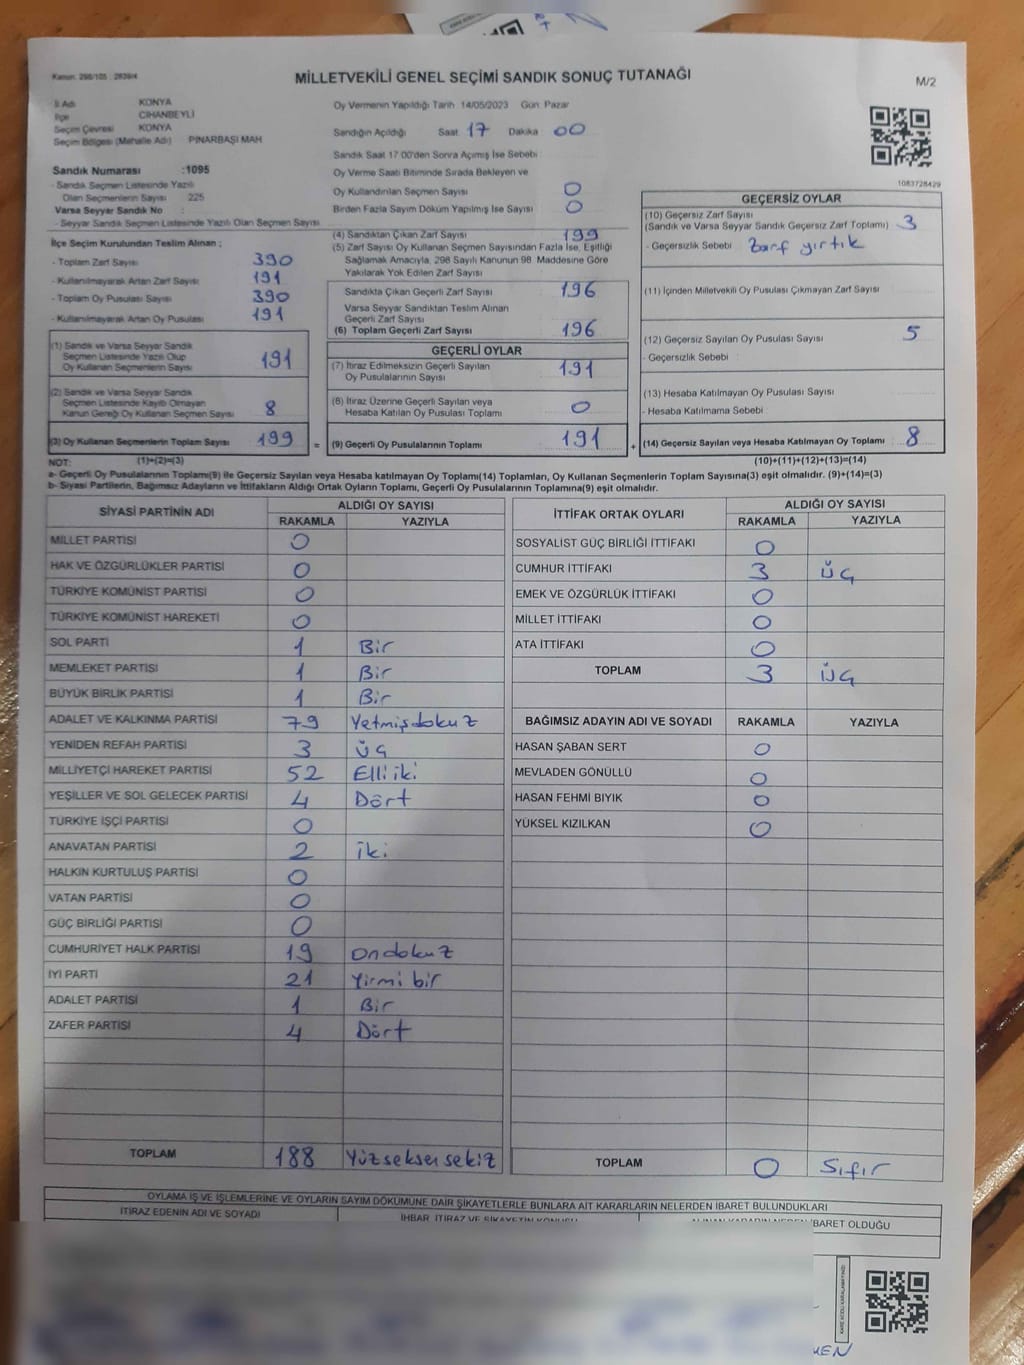 Kanun: 298/105 : 2839/4
MİLLETVEKİLİ GENEL SEÇİMİ SANDIK SONUÇ TUTANAĞI
M/2
İl Adı KONYA
İlçe CİHANBEYLİ
Seçim Çevresi KONYA
Seçim Bölgesi (Mahalle Adı) PINARBAŞI MAH
Sandık Numarası :1095
- Sandık Seçmen Listesinde Yazılı
Olan Seçmenlerin Sayısı 225
Varsa Seyyar Sandık No :
- Seyyar Sandık Seçmen Listesinde Yazılı Olan Seçmen Sayısı
İlçe Seçim Kurulundan Teslim Alınan ;
- Toplam Zarf Sayısı 390
- Kullanılmayarak Artan Zarf Sayısı 191
- Toplam Oy Pusulası Sayısı 390
- Kullanılmayarak Artan Oy Pusulası 191
(1) Sandık ve Varsa Seyyar Sandık
Seçmen Listesinde Yazılı Olup
Oy Kullanan Seçmenlerin Sayısı 191
(2) Sandık ve Varsa Seyyar Sandık
Seçmen Listesinde Kayıtlı Olmayan
Kanun Gereği Oy Kullanan Seçmen Sayısı 8
(3) Oy Kullanan Seçmenlerin Toplam Sayısı 199 =
Oy Vermenin Yapıldığı Tarih 14/05/2023 Gün: Pazar
Sandığın Açıldığı Saat: 17 Dakika 00
Sandık Saat 17:00'den Sonra Açılmış İse Sebebi
Oy Verme Saati Bitiminde Sırada Bekleyen ve
Oy Kullandırılan Seçmen Sayısı 0
Birden Fazla Sayım Döküm Yapılmış İse Sayısı 0
(4) Sandıktan Çıkan Zarf Sayısı 199
(5) Zarf Sayısı Oy Kullanan Seçmen Sayısından Fazla İse, Eşitliği
Sağlamak Amacıyla, 298 Sayılı Kanunun 98 Maddesine Göre
Yakılarak Yok Edilen Zarf Sayısı
Sandıkta Çıkan Geçerli Zarf Sayısı 196
Varsa Seyyar Sandıktan Teslim Alınan
Geçerli Zarf Sayısı
(6) Toplam Geçerli Zarf Sayısı 196
GEÇERLİ OYLAR
(7) İtiraz Edilmeksizin Geçerli Sayılan
Oy Pusulalarının Sayısı 191
(8) İtiraz Üzerine Geçerli Sayılan veya
Hesaba Katılan Oy Pusulası Toplamı 0
(9) Geçerli Oy Pusulalarının Toplamı 191 +
1083728429
GEÇERSİZ OYLAR
(10) Geçersiz Zarf Sayısı
(Sandık ve Varsa Seyyar Sandık Geçersiz Zarf Toplamı) 3
- Geçersizlik Sebebi : Zarf yırtık
(11) İçinden Milletvekili Oy Pusulası Çıkmayan Zarf Sayısı
(12) Geçersiz Sayılan Oy Pusulası Sayısı 5
- Geçersizlik Sebebi :
(13) Hesaba Katılmayan Oy Pusulası Sayısı
- Hesaba Katılmama Sebebi :
(14) Geçersiz Sayılan veya Hesaba Katılmayan Oy Toplamı 8
NOT: (1)+(2)=(3) (10)+(11)+(12)+(13)=(14)
a- Geçerli Oy Pusulalarının Toplamı(9) ile Geçersiz Sayılan veya Hesaba katılmayan Oy Toplamı(14) Toplamları, Oy Kullanan Seçmenlerin Toplam Sayısına(3) eşit olmalıdır. (9)+(14)=(3)
b- Siyasi Partilerin, Bağımsız Adayların ve İttifakların Aldığı Ortak Oyların Toplamı, Geçerli Oy Pusulalarının Toplamına(9) eşit olmalıdır.
SİYASİ PARTİNİN ADI ALDIĞI OY SAYISI
RAKAMLA YAZIYLA
MİLLET PARTİSİ 0
HAK VE ÖZGÜRLÜKLER PARTİSİ 0
TÜRKİYE KOMÜNİST PARTİSİ 0
TÜRKİYE KOMÜNİST HAREKETİ 0
SOL PARTİ 1 Bir
MEMLEKET PARTİSİ 1 Bir
BÜYÜK BİRLİK PARTİSİ 1 Bir
ADALET VE KALKINMA PARTİSİ 79 Yetmişdokuz
YENİDEN REFAH PARTİSİ 3 üç
MİLLİYETÇİ HAREKET PARTİSİ 52 Elli iki
YEŞİLLER VE SOL GELECEK PARTİSİ 4 Dört
TÜRKİYE İŞÇİ PARTİSİ 0
ANAVATAN PARTİSİ 2 iki
HALKIN KURTULUŞ PARTİSİ 0
VATAN PARTİSİ 0
GÜÇ BİRLİĞİ PARTİSİ 0
CUMHURİYET HALK PARTİSİ 19 Ondokuz
İYİ PARTİ 21 Yirmi bir
ADALET PARTİSİ 1 Bir
ZAFER PARTİSİ 4 Dört
TOPLAM 188 Yüzseksensekiz
İTTİFAK ORTAK OYLARI ALDIĞI OY SAYISI
RAKAMLA YAZIYLA
SOSYALİST GÜÇ BİRLİĞİ İTTİFAKI 0
CUMHUR İTTİFAKI 3 üç
EMEK VE ÖZGÜRLÜK İTTİFAKI 0
MİLLET İTTİFAKI 0
ATA İTTİFAKI 0
TOPLAM 3 üç
BAĞIMSIZ ADAYIN ADI VE SOYADI RAKAMLA YAZIYLA
HASAN ŞABAN SERT 0
MEVLADEN GÖNÜLLÜ 0
HASAN FEHMİ BIYIK 0
YÜKSEL KIZILKAN 0
TOPLAM 0 Sıfır
OYLAMA İŞ VE İŞLEMLERİNE VE OYLARIN SAYIM DÖKÜMÜNE DAİR ŞİKAYETLERLE BUNLARA AİT KARARLARIN NELERDEN İBARET BULUNDUKLARI
İTİRAZ EDENİN ADI VE SOYADI
İHBAR, İTİRAZ VE ŞİKAYETİN KONUSU
İBARET OLDUĞU